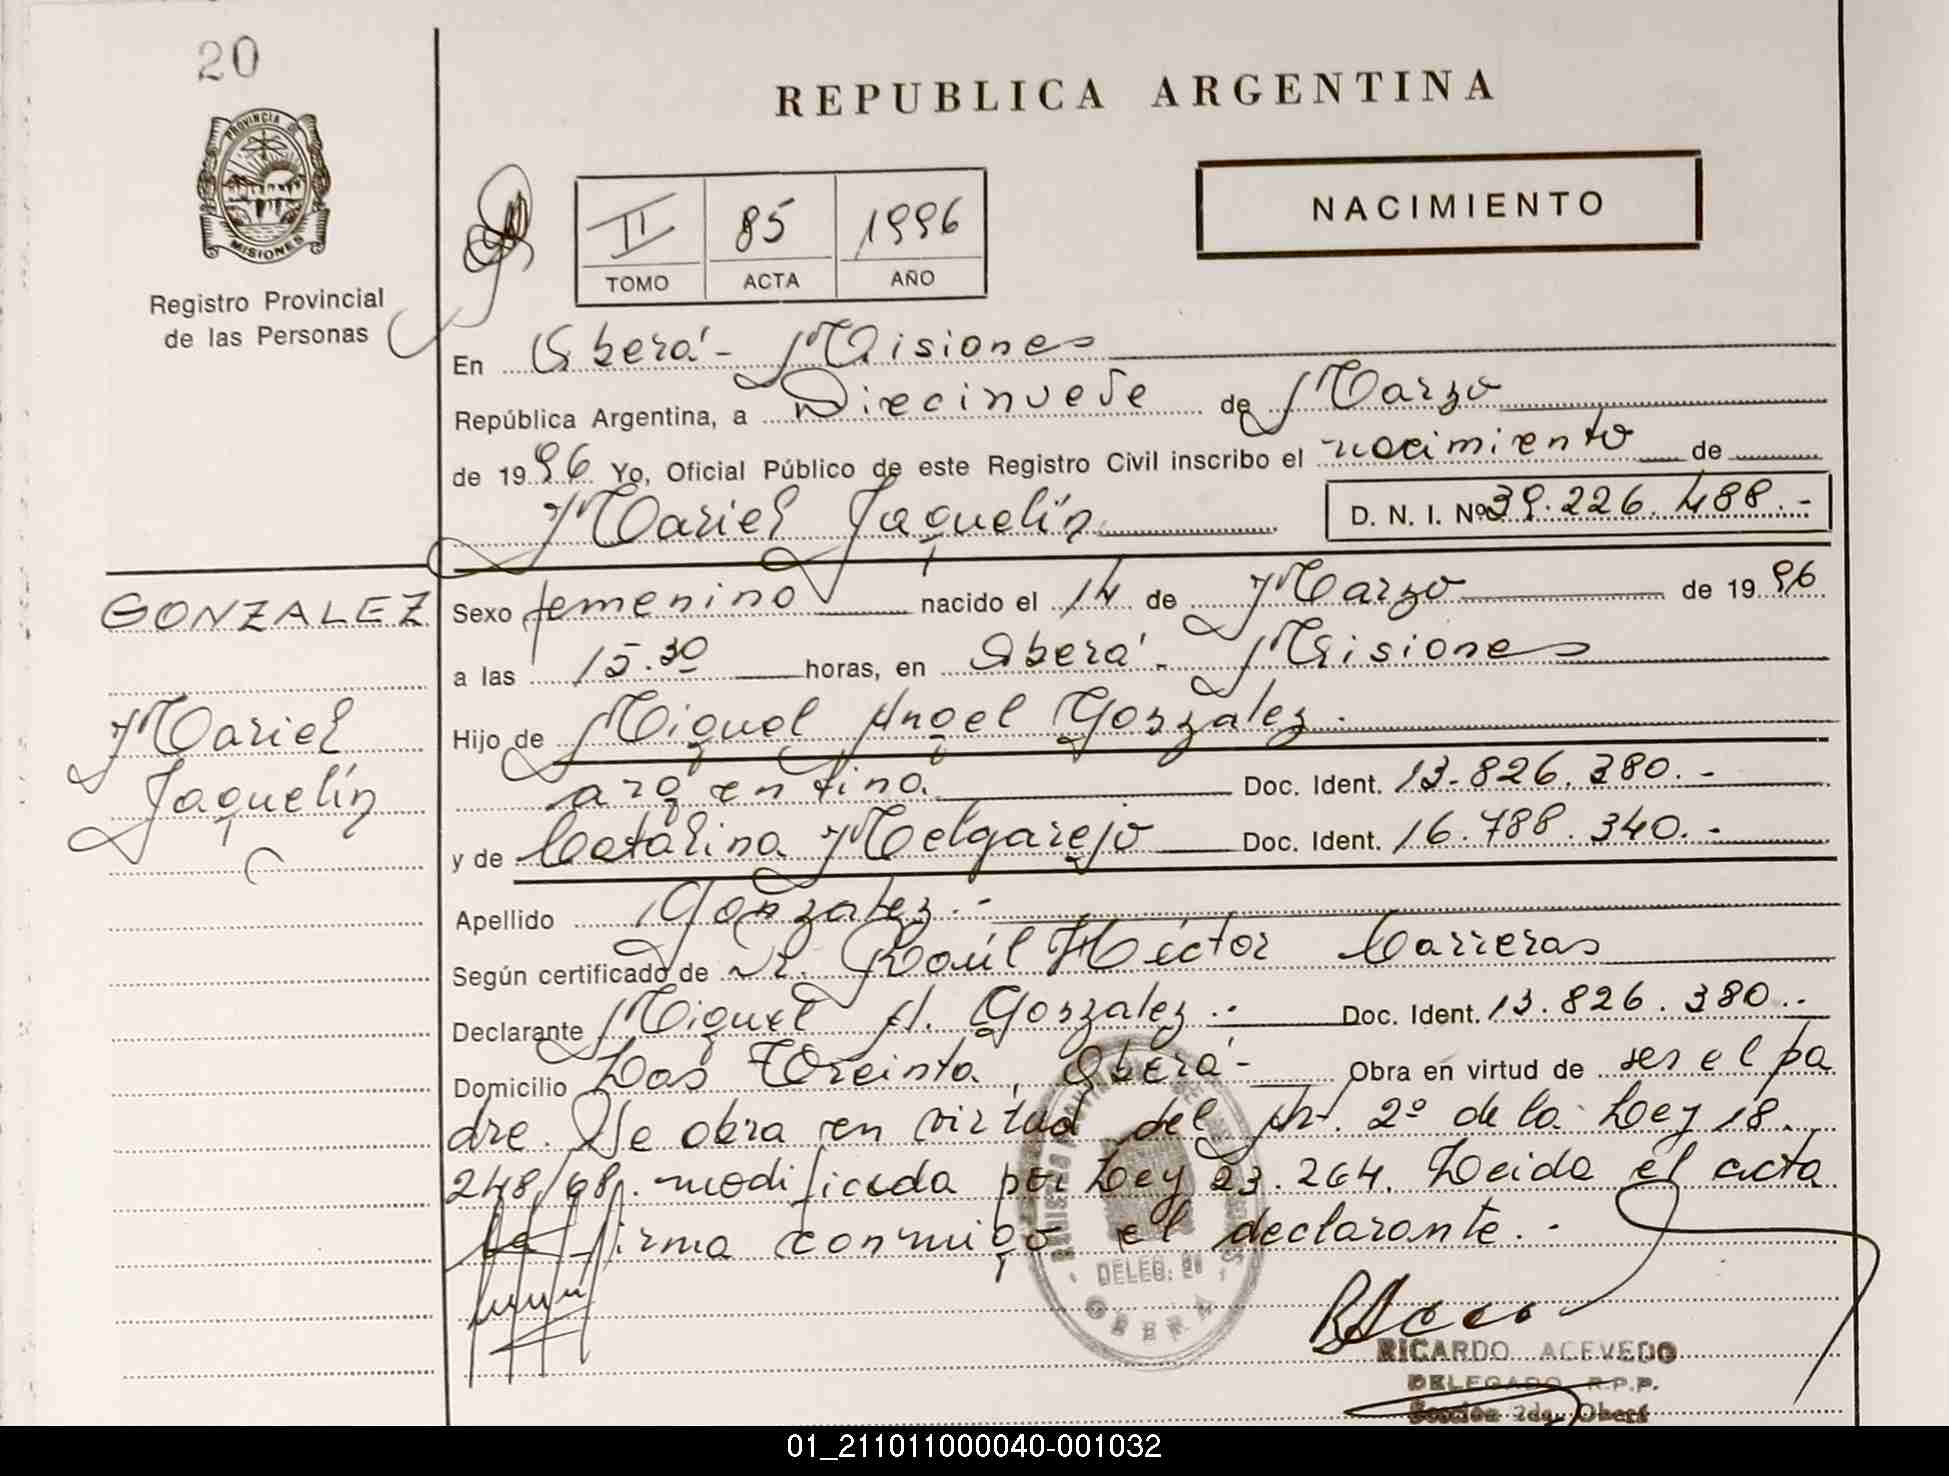 20
PROVINCIA
MISIONES
Registro Provincial
de las Personas
REPUBLICA ARGENTINA
NACIMIENTO
II 85 1996
TOMO ACTA AÑO
En Oberá - Misiones
República Argentina, a Diecinueve de Marzo
de 1996 Yo, Oficial Público de este Registro Civil inscribo el nacimiento de
Mariel Jaquelín D. N. I. Nº 39.226.488.-
GONZALEZ
Mariel
Jaquelín
Sexo femenino nacido el 14 de Marzo de 1996
a las 15.30 horas, en Oberá - Misiones
Hijo de Miguel Angel Gonzalez.
argentino. Doc. Ident. 13.826.380.-
y de Catalina Melgarejo Doc. Ident. 16.788.340.-
Apellido Gonzalez.-
Según certificado de Dr. Raúl Héctor Carreras
Declarante Miguel A. Gonzalez.. Doc. Ident. 13.826.380..
Domicilio Las Treinta, Oberá - Obra en virtud de ser el pa
dre. Se obra en virtud del Art. 2º de la Ley 18.
248/68. modificada por Ley 23.264. Leida el acta
la firma conmigo el declarante.-
DELEG.
OBERA
RICARDO ACEVEDO
DELEGADO R.P.P.
Sección 2da. Oberá
01_211011000040-001032